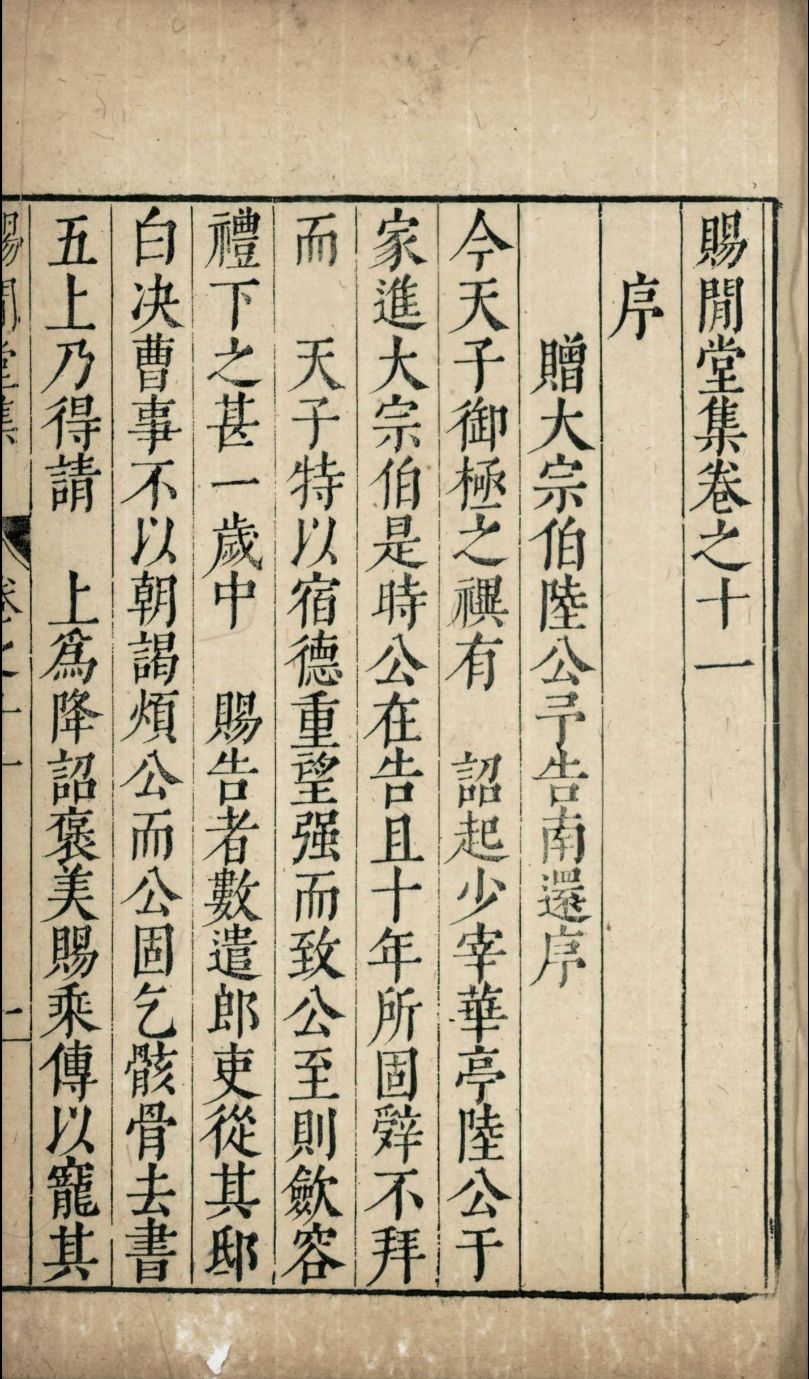 賜閒堂集卷之十一
序
贈大宗伯陸公予告南還序
今天子御極之禩有　詔起少宰華亭陸公于
家進大宗伯是時公在告且十年所固辤不拜
而　天子特以宿德重望强而致公至則歛容
禮下之甚一歲中　賜告者數遣郎吏從其邸
白决曹事不以朝謁煩公而公固乞骸骨去書
五上乃得請　上爲降詔褒美賜乘傳以寵其
賜閒堂集
卷之十一
一